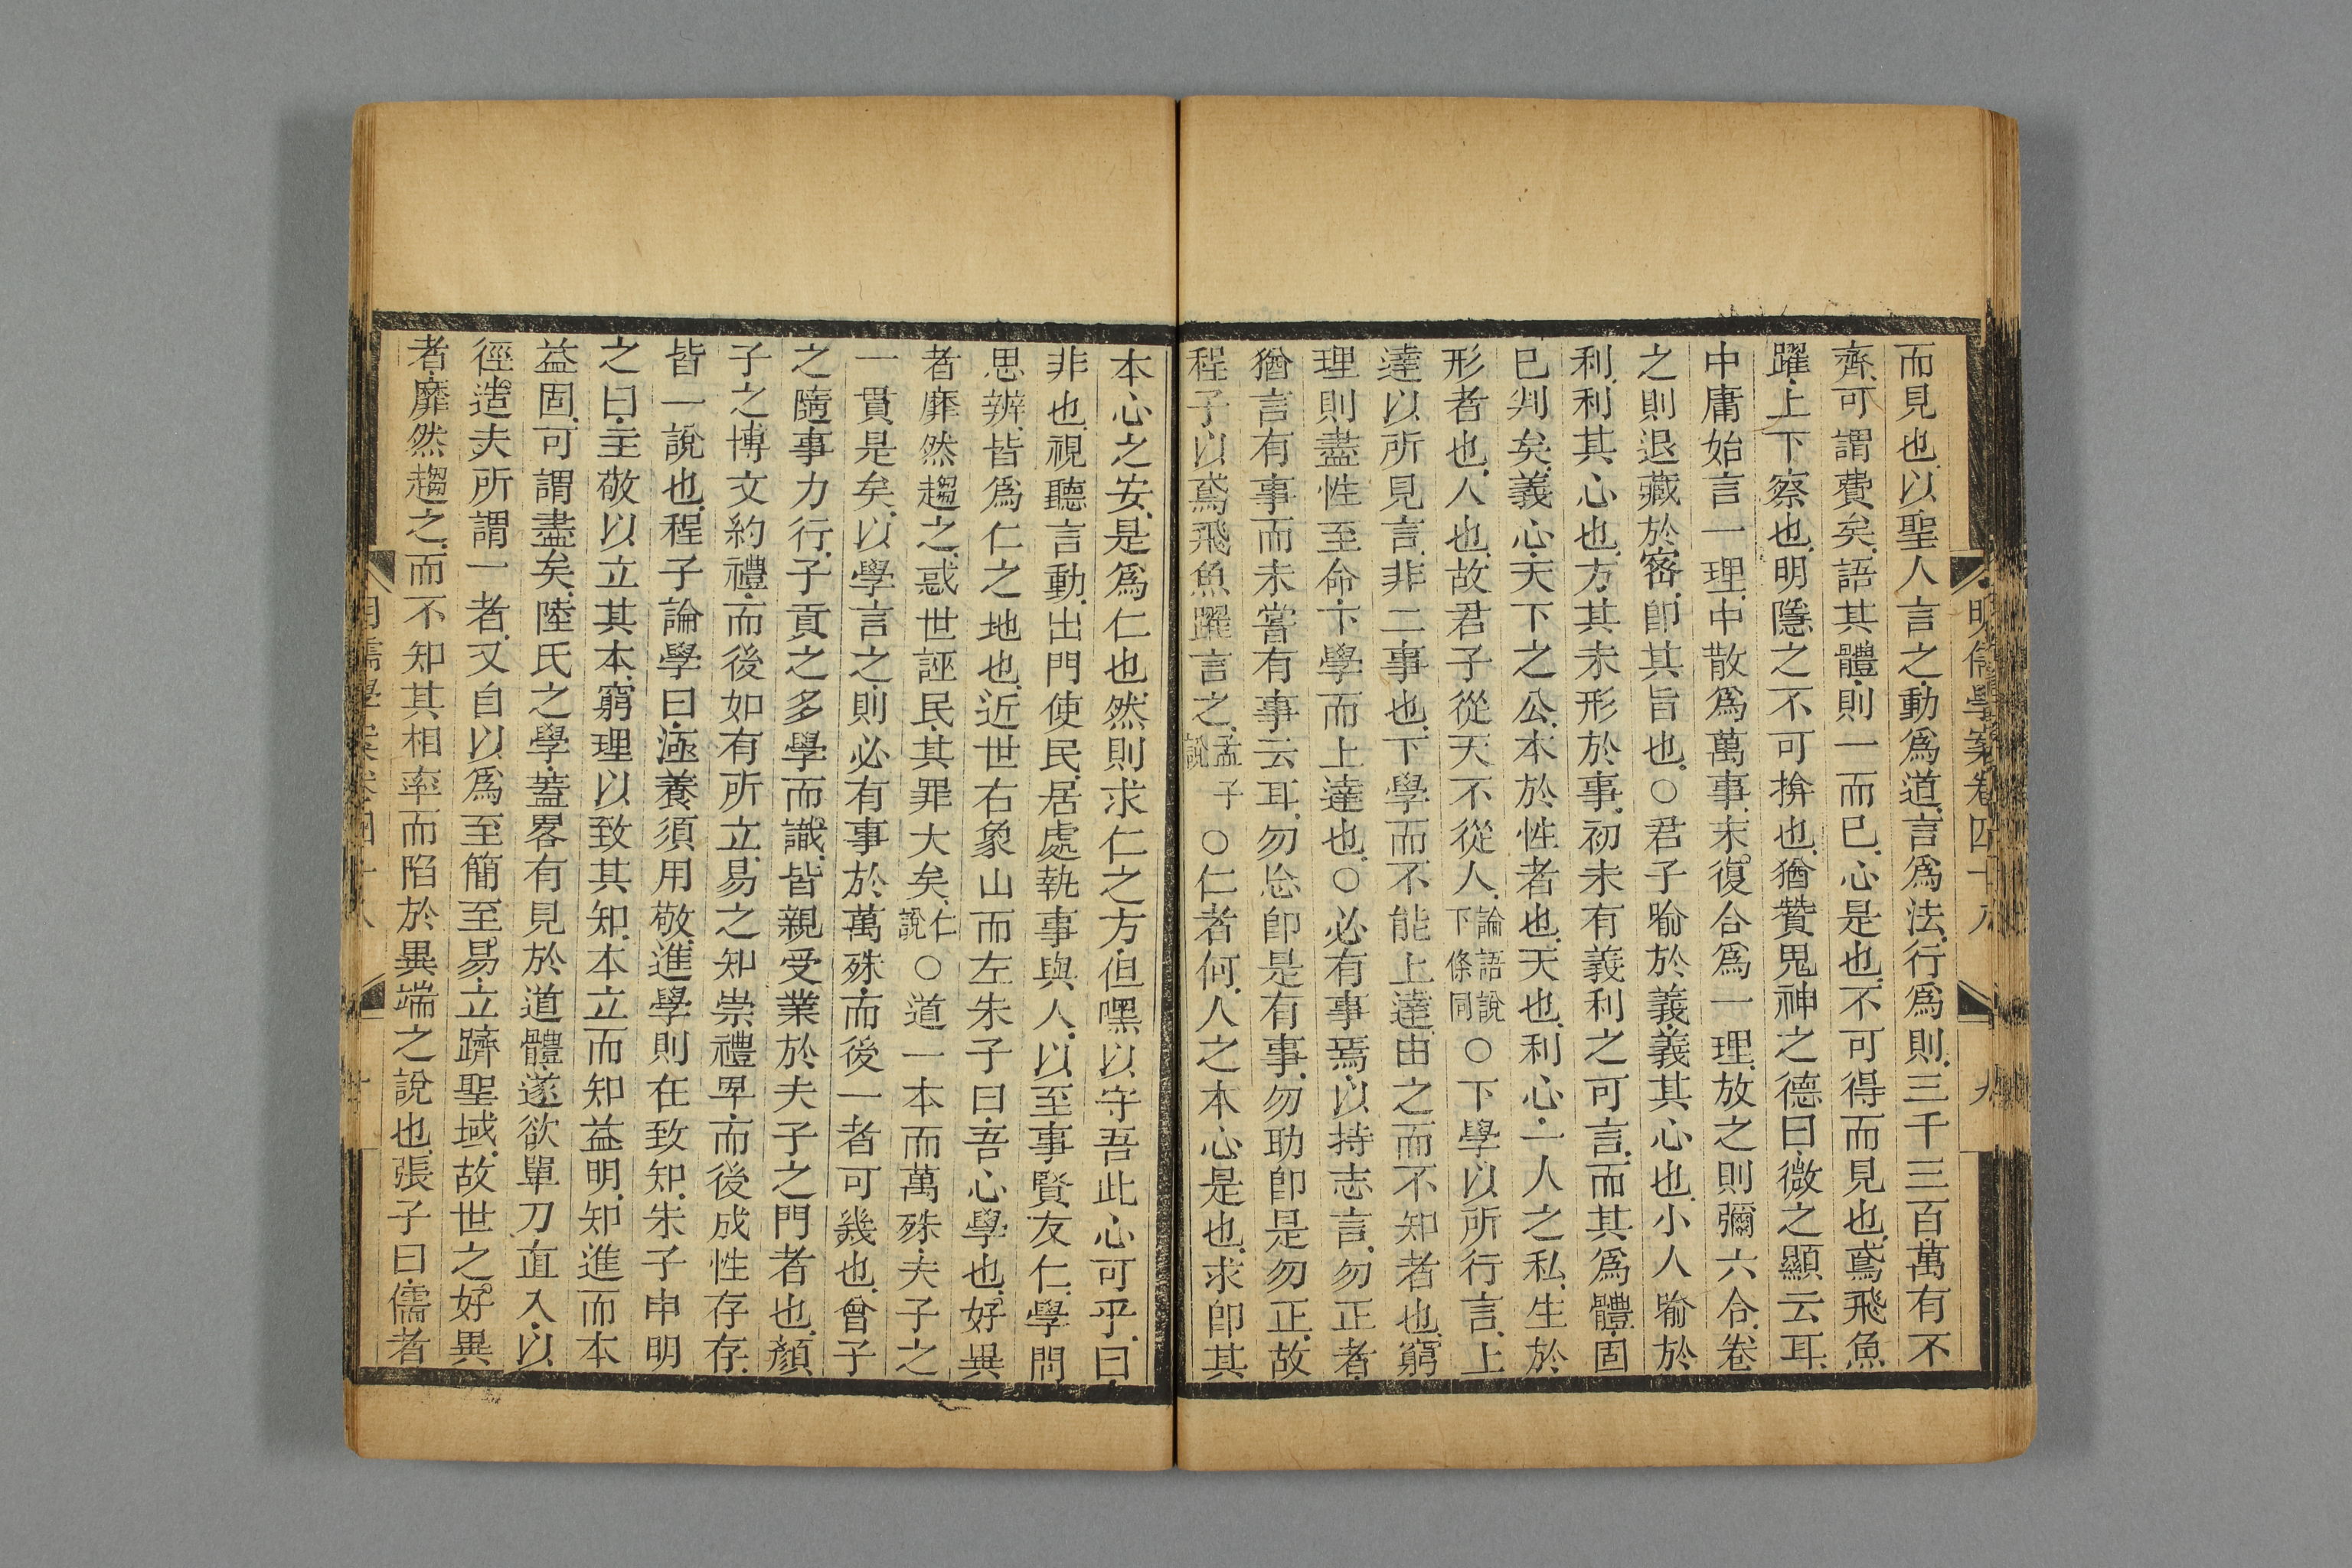 明儒學案卷四十八 九
而見也以聖人言之動爲道言爲法行爲則三千三百萬有不
齊可謂費矣語其體則一而已心是也不可得而見也鳶飛魚
躍上下察也明隱之不可揜也猶贊鬼神之德曰微之顯云耳
中庸始言一理中散爲萬事末復合爲一理放之則彌六合卷
之則退藏於密卽其旨也○君子喻於義義其心也小人喻於
利利其心也方其未形於事初未有義利之可言而其爲體固
已判矣義心天下之公本於性者也天也利心一人之私生於
形者也人也故君子從天不從人論語說下條同○下學以所行言上
達以所見言非二事也下學而不能上達由之而不知者也窮
理則盡性至命下學而上達也○必有事焉以持志言勿正者
猶言有事而未嘗有事云耳勿忘卽是有事勿助卽是勿正故
程子以鳶飛魚躍言之孟子說○仁者何人之本心是也求卽其
本心之安是爲仁也然則求仁之方但嘿以守吾此心可乎曰
非也視聽言動出門使民居處執事與人以至事賢友仁學問
思辨皆爲仁之地也近世右象山而左朱子曰吾心學也好異
者靡然趨之惑世誣民其罪大矣仁說○道一本而萬殊夫子之
一貫是矣以學言之則必有事於萬殊而後一者可幾也曾子
之隨事力行子貢之多學而識皆親受業於夫子之門者也顏
子之博文約禮而後如有所立易之知崇禮卑而後成性存存
皆一說也程子論學曰涵養須用敬進學則在致知朱子申明
之曰主敬以立其本窮理以致其知本立而知益明知進而本
益固可謂盡矣陸氏之學蓋畧有見於道體遂欲單刀直入以
徑造夫所謂一者又自以爲至簡至易立躋聖域故世之好異
者靡然趨之而不知其相率而陷於異端之說也張子曰儒者
明儒學案卷四十八